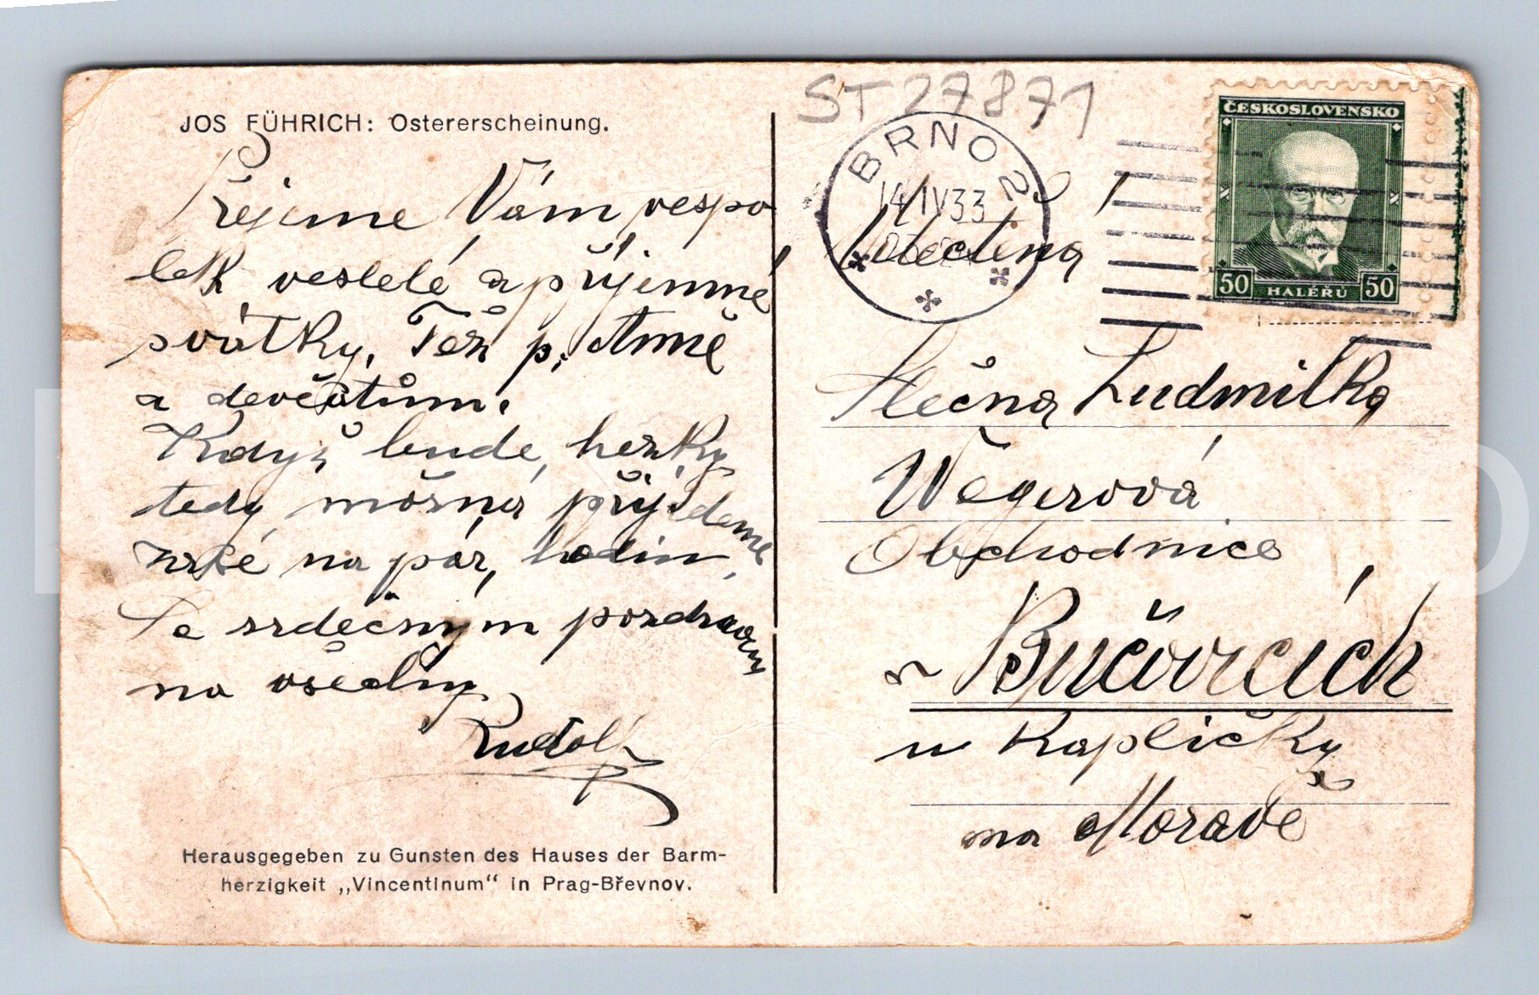 JOS FÜHRICH: Ostererscheinung.
Přejeme Vám vespo
lek veslelé a příjemné
svátky. Též p. Anně
a děvčatům.
Když bude hezky
tedy možná přijedeme
na pár hodin.
Se srdečným pozdravem
na všechny
Rudolf
Herausgegeben zu Gunsten des Hauses der Barm-
herzigkeit „Vincentinum“ in Prag-Břevnov.
ST27871
BRNO 2
14 IV 33
ČESKOSLOVENSKO
50 HALÉRŮ 50
Ctěná
Slečna Ludmilka
Wégerová
Obchodnice
v Bučovicích
u Kapličky
na Moravě